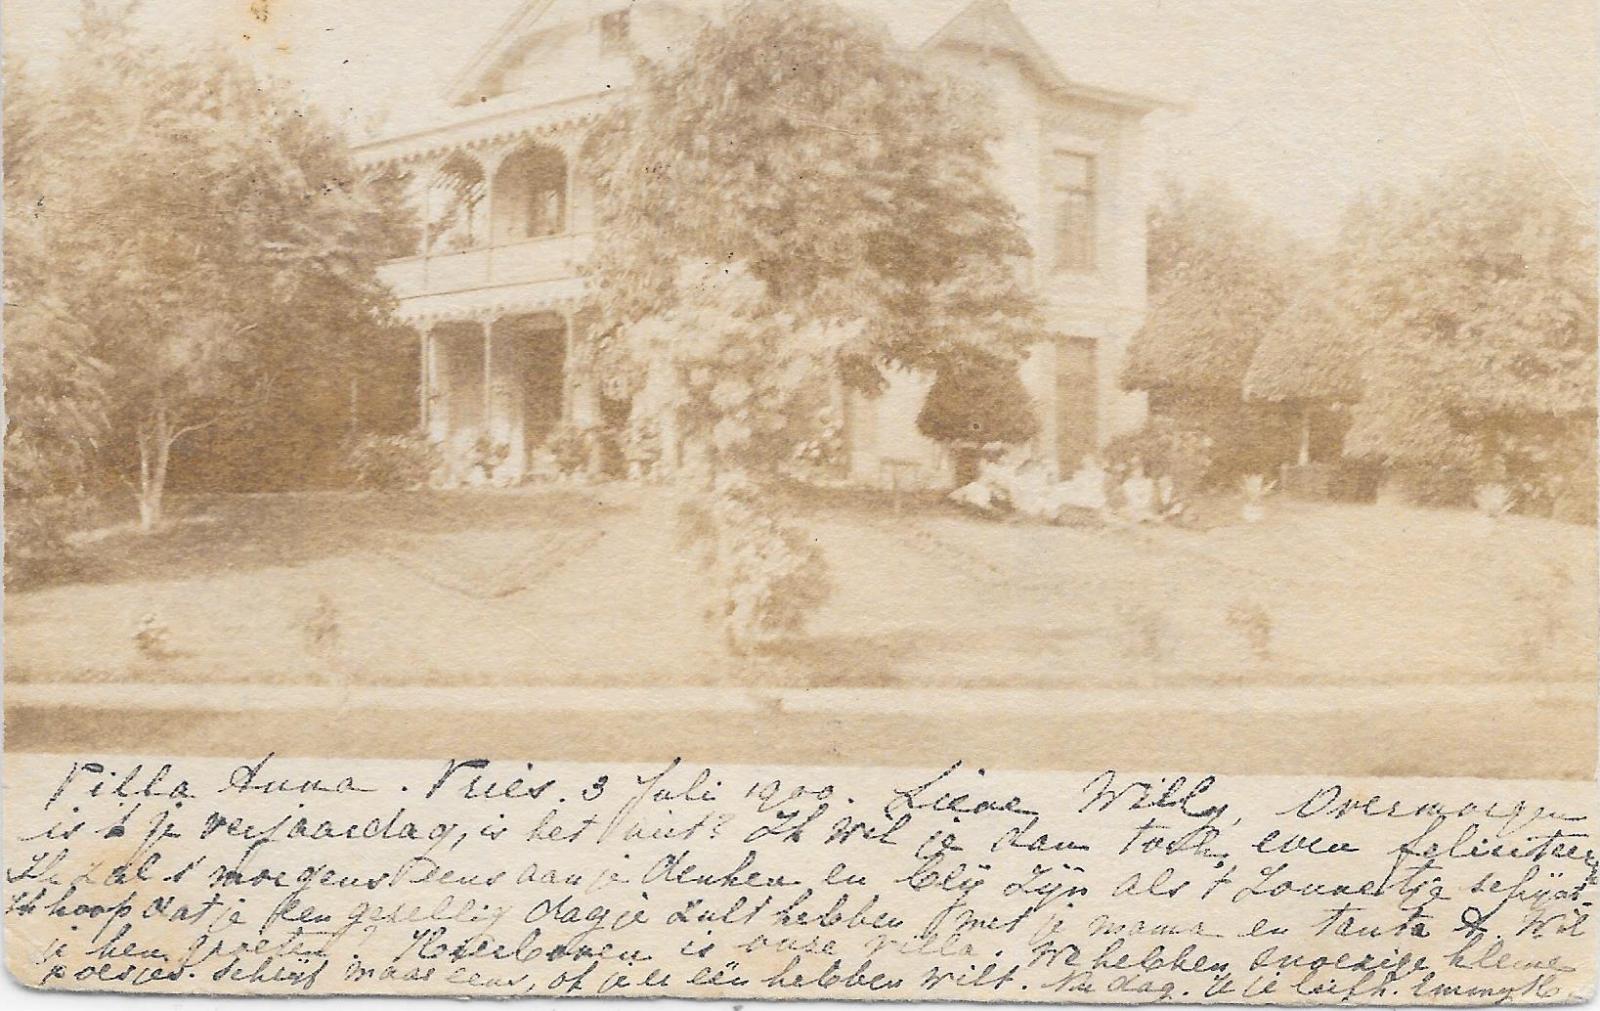 Villa Anna. Vries. 3 Juli 1900. Lieve Willy, Overmorgen
is 't je verjaardag, is het niet? Ik wil je dan toch even feliciteeren
Ik zal 's morgens eens aan je denken en blij zijn als 't Zonnetje schijnt.
Ik hoop dat je een gezellig dagje zult hebben met je mama en tante A. Wil
je hen groeten? Hierboven is onze villa. We hebben snoezige kleine
poesjes. Schrijf maar eens, of je er één hebben wilt. Nu dag. je liefh. Emmy